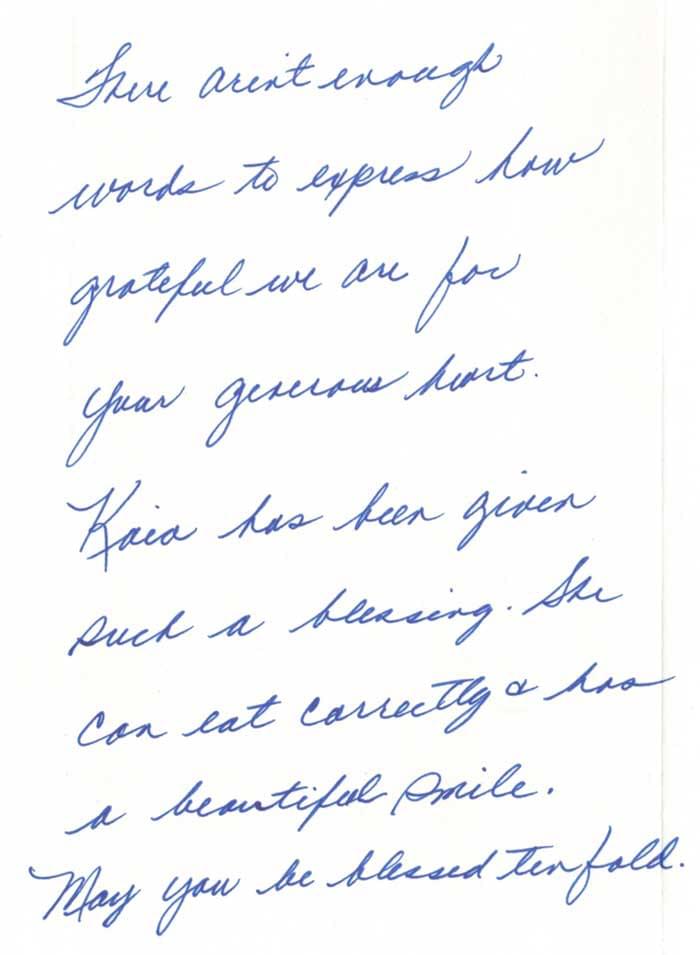 There aren't enough
words to express how
grateful we are for
your generous heart.
Kaia has been given
such a blessing. She
can eat correctly & has
a beautiful smile.
May you be blessed ten fold.